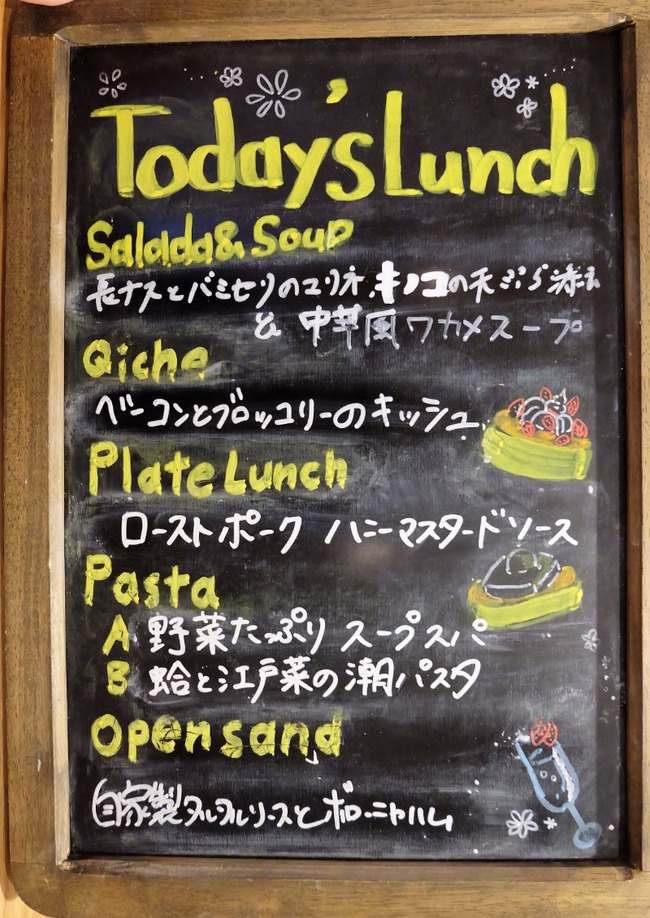 Today's Lunch
Salada & Soup
長ナスとバミセリのマリネ、キノコの天ぷら添え
& 中華風ワカメスープ
Qiche
ベーコンとブロッコリーのキッシュ
Plate Lunch
ローストポーク ハニーマスタードソース
Pasta
A 野菜たっぷり スープスパ
B 蛤と江戸菜の潮パスタ
Open sand
自家製タルタルソースとボローニャハム